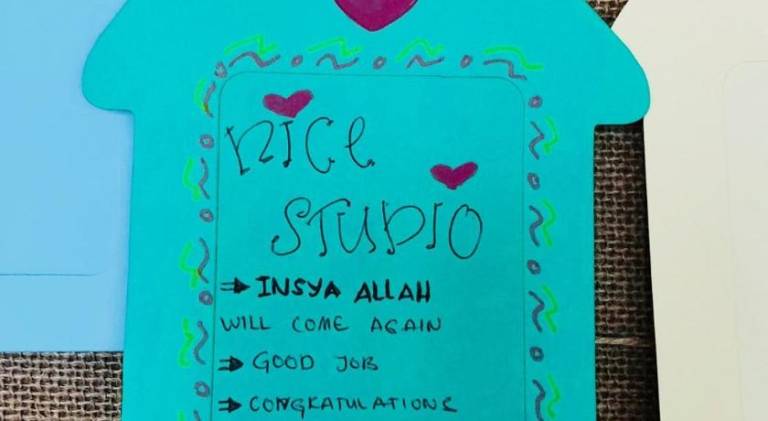 nice
STUDIO
⇒ INSYA ALLAH
WILL COME AGAIN
⇒ GOOD JOB
⇒ CONGRATULATIONS